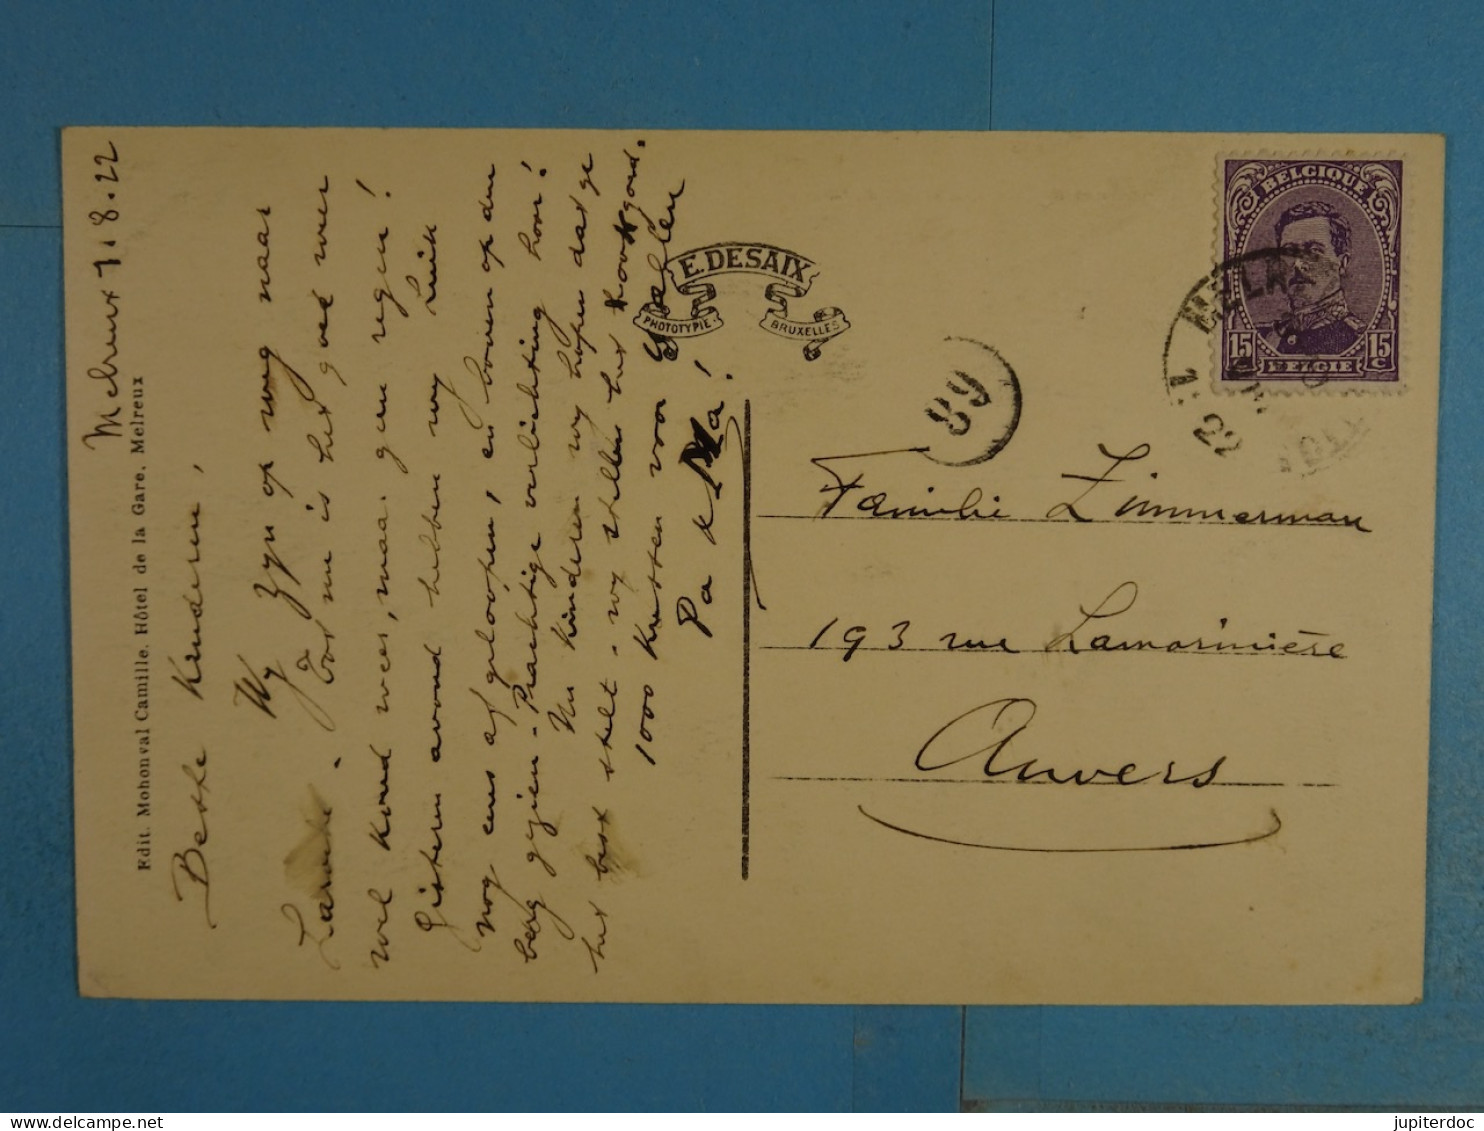 Melreux 7.8.22
Beste Kinderen,
Wy zyn op weg naar
Laroche. Toe nu is het goed weer
wel koud wees, maar geen regen!
Gisteren avond hebben wy Luik
nog eens afgeloopen, en boven op den
berg gezien - Prachtige verlichting hoor!
Nu kinderen wy hopen dat ge
het best stelt - wy stellen het ook goed.
1000 kussen voor U allen
Pa & Ma!
Edit. Mohonval Camille, Hôtel de la Gare, Melreux
E. DESAIX
PHOTOTYPIE
BRUXELLES
89
BELGIQUE
15 15
C C
BELGIE
22
Familie Zimmerman
193 rue Lamorinière
Anvers
jupiterdoc